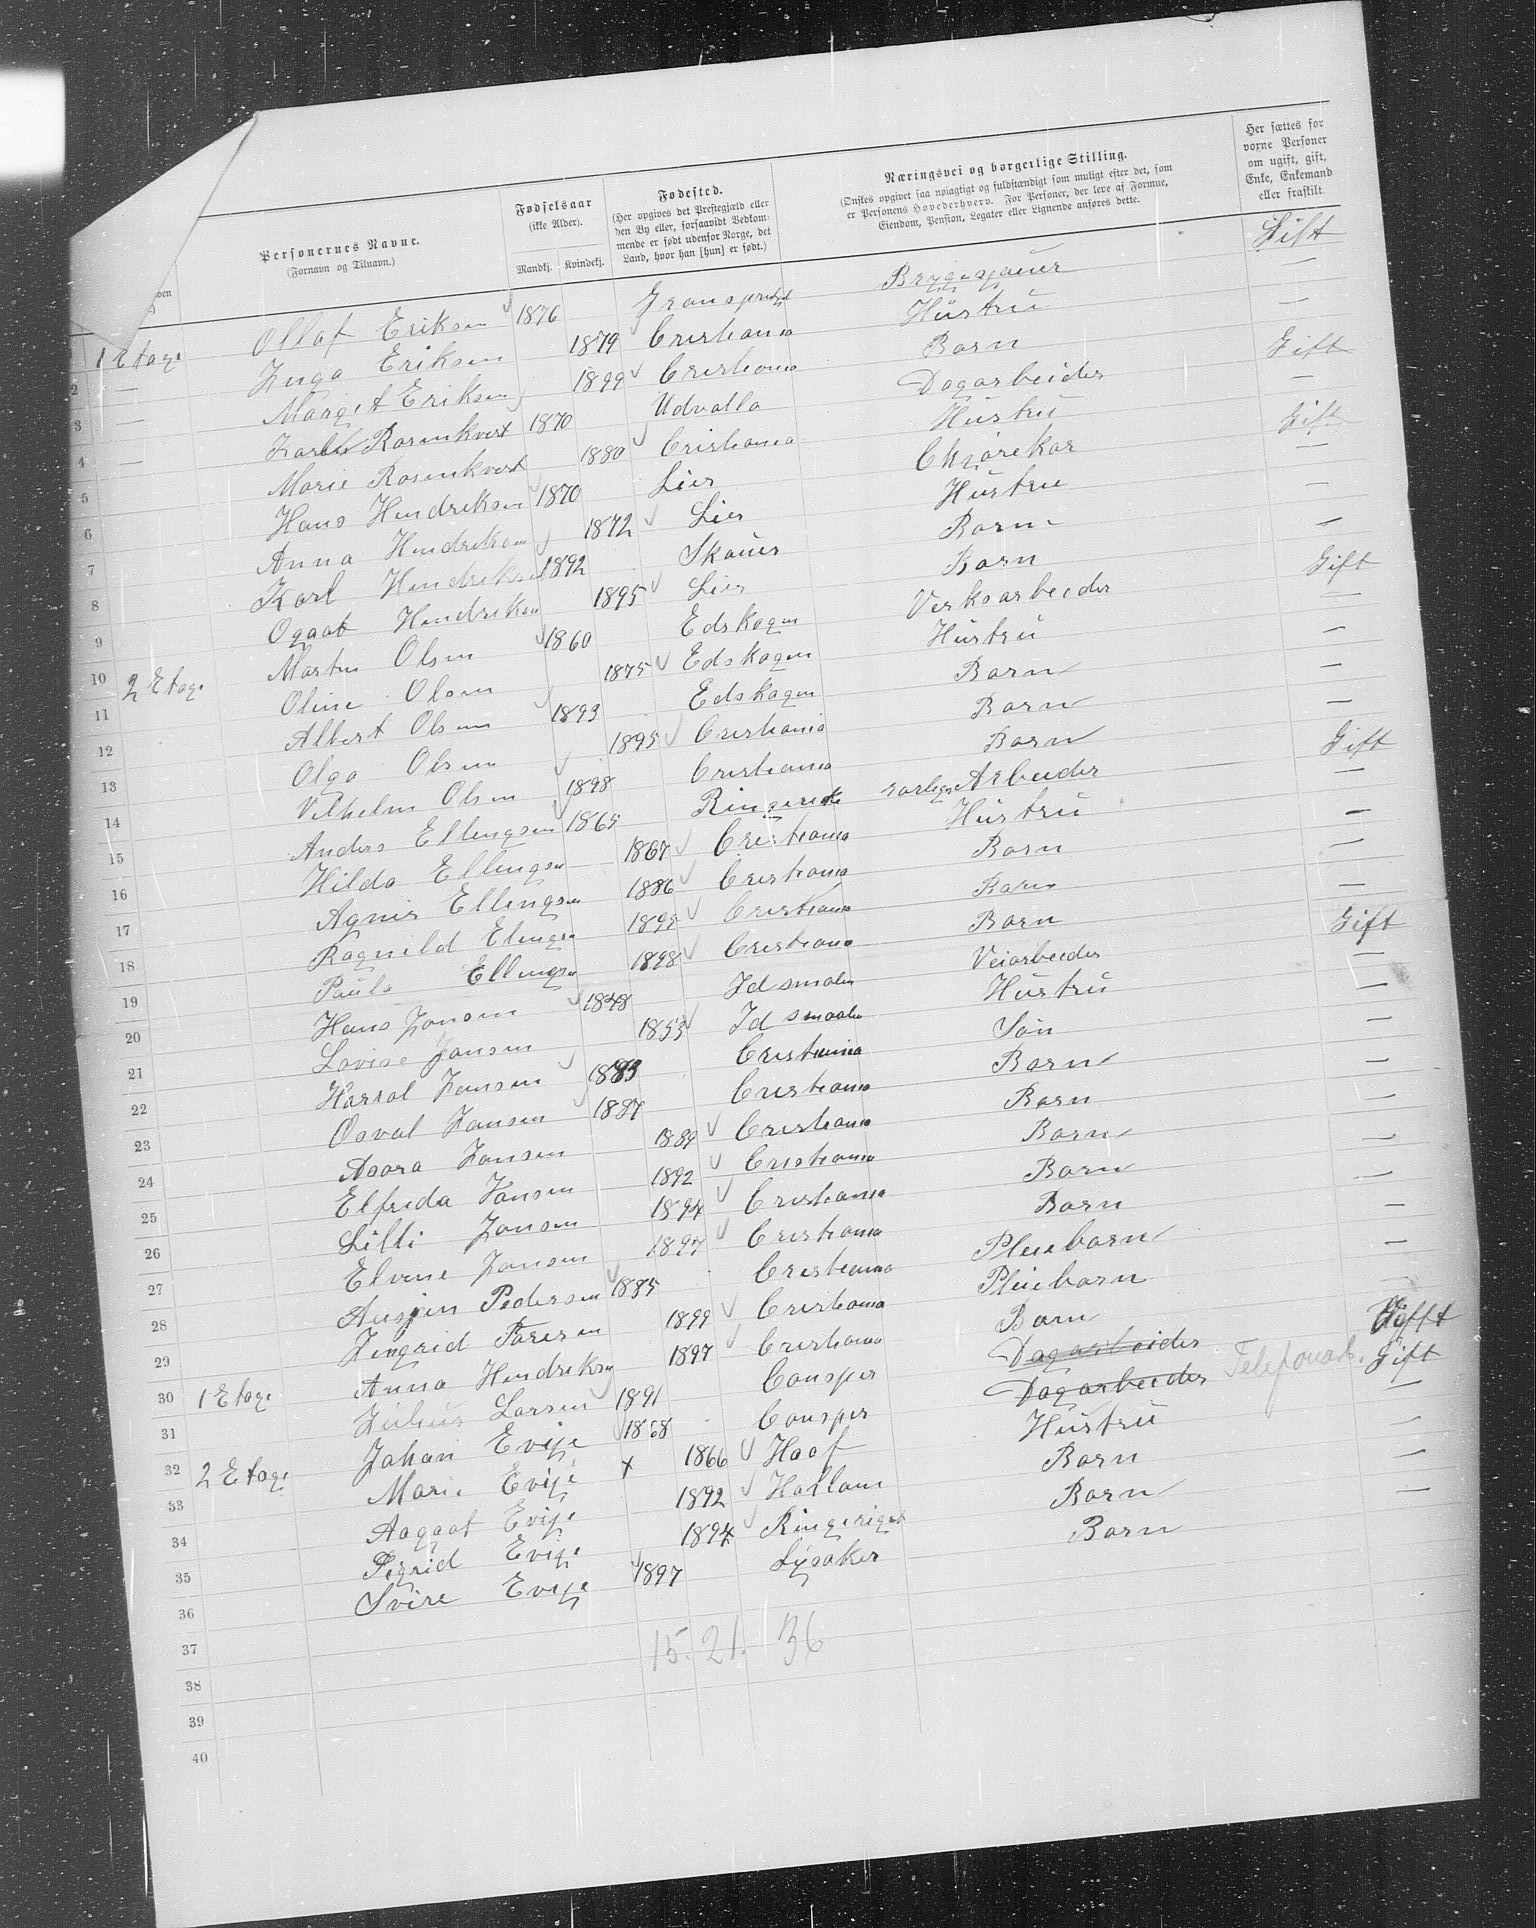 Personernes Navne.
(Fornavn og Tilnavn.)
Fødselsaar
(ikke Alder).
Mandkj. Kvindekj.
Fødested.
(Her opgives det Prestegjæld eller
den By eller, forsaavidt Vedkom-
mende er født udenfor Norge, det
Land, hvor han [hun] er født.)
Næringsvei og borgerlige Stilling.
(Ønskes opgivet saa nøiagtigt og fuldstændigt som muligt efter det, som
er Personens Hovederhverv. For Personer, der leve af Formue,
Eiendom, Pension, Legater eller Lignende anføres dette.
Her sættes for
voxne Personer
om ugift, gift,
Enke, Enkemand
eller fraskilt.
1 Etage Ollaf Eriksen 1876 Gift
2 — Inga Eriksen 1879 Cristiania Hustru —
3 — Margit Eriksen 1899 Cristiania Barn —
4 — Rosenkvert 1870 Udvalla Dagarbeider Gift
5 Marie Rosenkvert 1880 Cristiania Hustru —
6 Hans Hendriksen 1870 Lier Chjørekar Gift
7 Anna Hendriksen 1872 Lier Hustru —
8 Karl Hendriksen 1892 Skouer Barn —
9 Ogaat Hendriksen 1895 Lier Barn —
10 2 Etage Martin Olsen 1860 Edskogen Verksarbeider Gift
11 Oline Olsen 1875 Edskogen Hustru —
12 Albert Olsen 1893 Edskogen Barn —
13 Olga Olsen 1895 Cristiania Barn —
14 Vilhelm Olsen 1898 Cristiania Barn —
15 Anders Ellingsen 1865 Ringerike Arbeider Gift
16 Hilda Ellingsen 1867 Cristiania Hustru —
17 Agnis Ellingsen 1886 Cristiania Barn —
18 Ragnild Elingse Cristiania Barn —
19 Paula Ellingse 1898 Cristiania Barn —
20 Hans Jansen 1848 Id smalen Veiarbeider Gift
21 Lovise Jansen 1853 Id smaalen Hustru —
22 Harral Jansen 1883 Cristiania Søn —
23 Osval Jansen 1887 Cristiania Barn —
24 Asora Jansen 1889 Cristiania Barn —
25 Elfreda Jansen 1892 Cristiania Barn —
26 Lilli Jansen 1894 Cristiania Barn —
27 Elvine Jansen 1897 Cristiania Barn —
28 Pedersen 1885 Cristiania Pleiebarn —
29 Ingrid 1899 Cristiania Pleiebarn —
30 1 Etage Anna Hendriksen 1897 Cristiania Barn —
31 Julius Larsen 1891 Consper Dagarbeider
32 2 Etage Johan Evije 1868 Consper Dagarbeider Telefonarb. Gift
33 Marie Evije x 1866 Haaf Hustru —
34 Aagaat Evije 1892 Barn —
35 Sigrid Evije 1894 Ringeriget Barn —
36 Svire Evije 1897 Lysaker Barn —
37
38 15. 21. 36
39
40